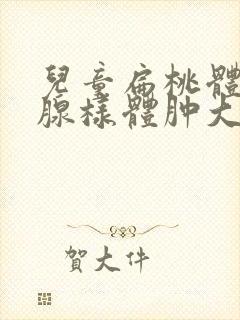 兒童扁桃體
腺樣體肿大
賀大件